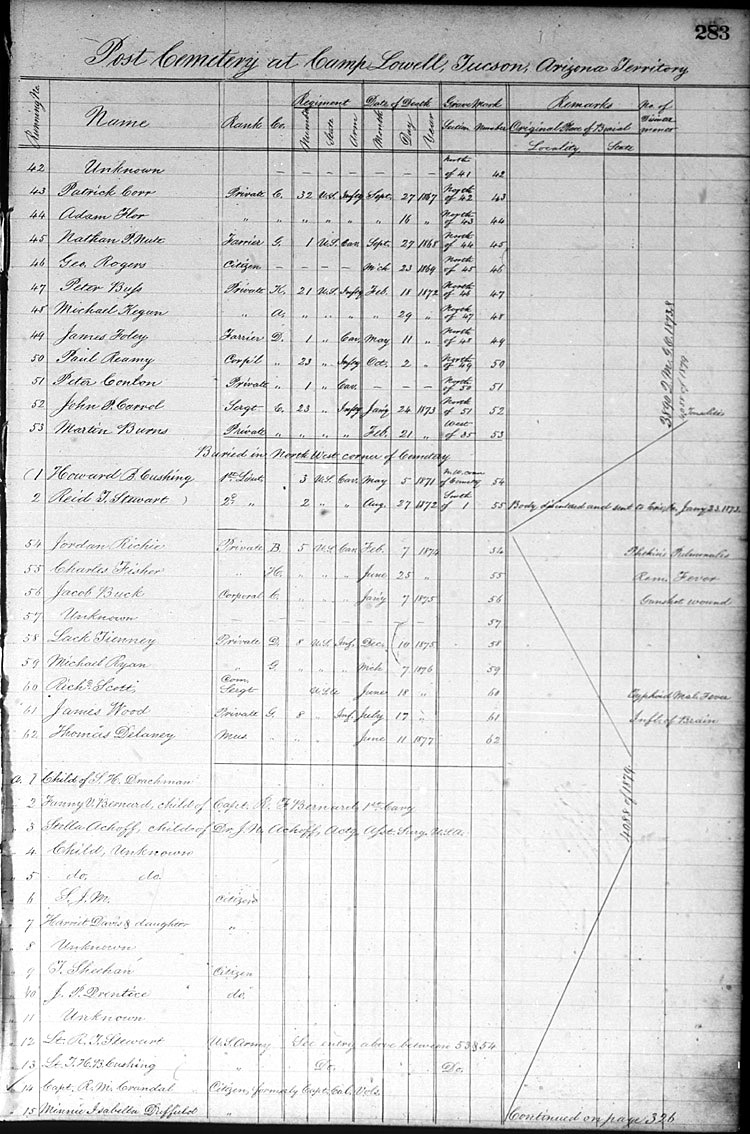 283
Post Cemetery at Camp Lowell, Tucson, Arizona Territory
Running No. Name Rank Co. Regiment Number State Arm Date of Death Month Day Year Grave Mark Section Number Remarks Original Place of Burial Locality State No. of
42 Unknown – – – – – – North of 41 42
43 Patrick Corr Private C. 32 U.S. Infty Sept. 27 1867 North of 42 43
44 Adam Hor " " " " " " 16 " North of 43 44
45 Nathan P. Nute Farrier G. 1 U.S. Cav. Sept. 27 1868 North of 44 45
46 Geo. Rogers Citizen – – – – Mch 23 1869 North of 45 46
47 Peter Buss Private K. 21 U.S. Infty Feb. 18 1872 North of 46 47
48 Michael Kegun " A. " " " " 29 " North of 47 48
49 James Foley Farrier D. 1 " Cav. May 11 " North of 48 49
50 Paul Reamy Corp'l " 23 " Infty Oct. 2 " North of 49 50
51 Peter Conlon Private " 1 " Cav. – – – North of 50 51
52 John P. Carrol Sergt C. 23 " Infty Jan'y 24 1873 North of 51 52
53 Martin Burns Private " " " " Feb. 21 " West of 35 53
Buried in North West corner of Cemetery
(1 Howard B. Cushing 1st Lieut. 3 U.S. Cav. May 5 1871 N.W. corn of Cemetery 54
2 Reid T. Stewart ) 2d " 2 " " Aug. 27 1872 South of 1 55 Body disinterred and sent to Erie, Pa. Jany 23. 1873.
54 Jordan Richie Private B. 5 U.S. Cav. Feb. 7 1874 54 Phthisis Pulmonalis
55 Charles Fisher " H. " " " June 25 " 55 Rem. Fever
56 Jacob Buck Corporal C. " " " Jan'y 7 1875 56 Gunshot wound
57 Unknown – – – – – – – – 57
58 Lack Tienney Private D. 8 U.S. Inf. Dec. 10 1875 58
59 Michael Ryan " G. " " " Mch 7 1876 59
60 Richd. Scott, Com. Sergt U.S.A June 18 " 60 Typhoid Mal. Fever
61 James Wood Private G. 8 " Inf. July 17 " 61 Infl. of Brain
62 Thomas Delaney Mus " " " " June 11 1877 62
a. 1 Child of S. H. Drachman
" 2 Fanny V. Bernard, child of Capt. R. F. Bernard, 1st Cavy
" 3 Stella Achoff, child of Dr. J. N. Achoff, Actg. Asst. Surg. U.S.A.
" 4 Child, Unknown
" 5 do, do.
" 6 S. J. M. Citizen
" 7 Harriet Davis & daughter "
" 8 Unknown
" 9 T. Sheehan Citizen
" 10 J. P. Prentice do.
" 11 Unknown
" 12 Lt. R. T. Stewart U.S. Army – See entry above between 53 & 54
" 13 Lt. H. B. Cushing " Do. Do.
" 14 Capt. R. M. Crandal Citizen, formerly Capt. Cal. Vols.
" 15 Minnie Isabella Duffield "
4088 of 1874.
Continued on page 326